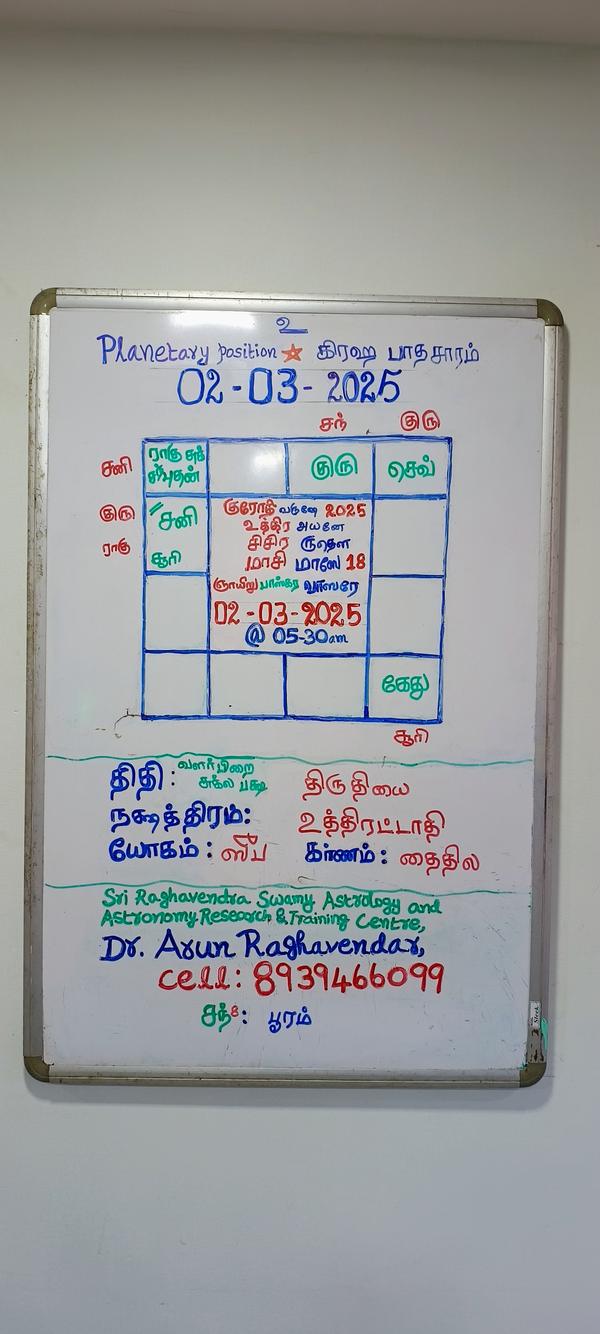 உ
Planetary position கிரஹ பாதசாரம்
02-03-2025
சந் குரு
சனி ராகு சுக் சந் புதன் குரு செவ்
குரு சனி
ராகு சூரி
குரோதி வருஷே 2025
உத்திர அயனே
சிசிர ருதௌ
மாசி மாஸே 18
ஞாயிறு பாஸ்கர வாஸரே
02-03-2025
@ 05-30am
கேது
சூரி
திதி: வளர்பிறை சுக்ல பக்ஷ திருதியை
நக்ஷத்திரம்: உத்திரட்டாதி
யோகம்: ஸுப கர்ணம்: தைதில
Sri Raghavendra Swamy Astrology and
Astronomy Research & Training Centre,
Dr. Arun Raghavendar,
cell: 8939466099
சந் 8: பூரம்